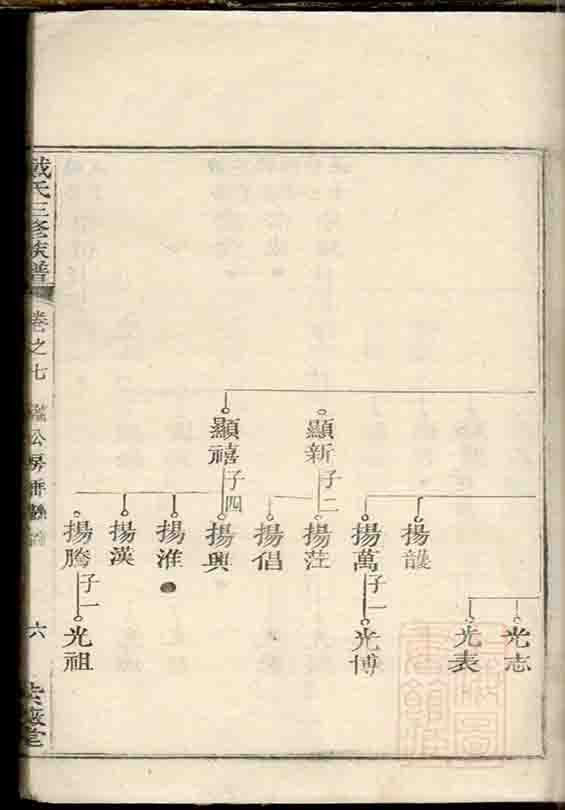 顯新 子二
顯禧 子四
揚護
揚萬 子一
揚茳
揚倡
揚興
揚淮
揚漢
揚騰 子一
光志
光表
光博
光祖
戴氏三修族譜
卷之七
公房
六
紫薇堂